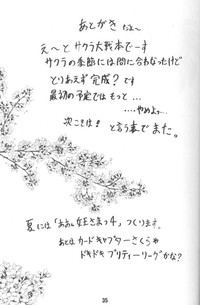 あとがきだよ〜
え〜とサクラ大戦本でーす
サクラの季節には間に合わなかったけど
とりあえず完成？です
最初の予定ではもっと…
……やめよ。
次こそは！と言う事でまた。
夏には「ああん女王さまっ4」つくります。
あとはカードキャプターさくらや
ドキドキプリティーリーグかな？
35